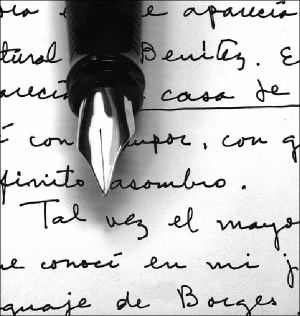 e aparecía
tural Benítez. E
areció casa de
con con q
finito asombro.
Tal vez el mayo
e conocí en mi j
guaje de Borges